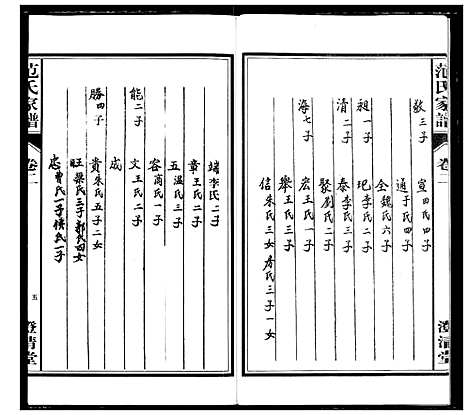 范氏家譜
卷二
澄清堂
敬三子
宣田氏四子
通于氏四子
全魏氏六子
祖一子
玘李氏二子
清二子
泰李氏三子
聚劉氏二子
海七子
宏王氏一子
舉王氏三子
信朱氏三女房氏三子一女
端李氏二子
章王氏二子
五溫氏三子
容商氏一子
能二子
文王氏二子
成
勝四子
貴朱氏五子二女
旺梁氏三子郭氏四女
忠曹氏一子侯氏一子
范氏家譜
卷二
五
澄清堂